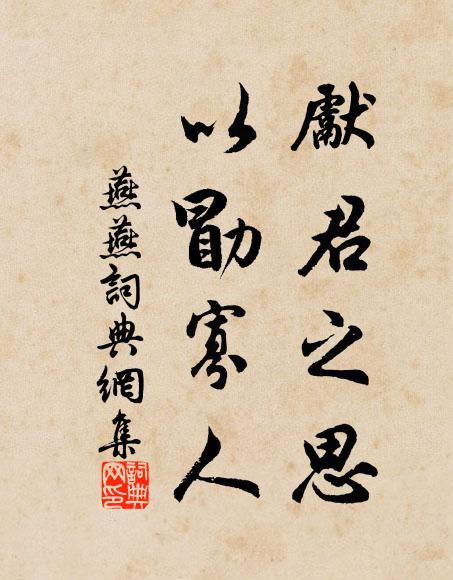 獻君之思
以勖寡人
燕燕詞典網集
詞典
网印